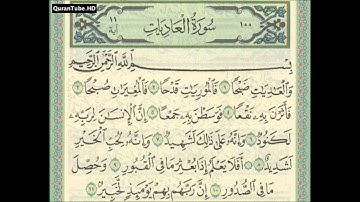 QuranTube.HD
١١ آية سورة العاديات ١٠٠
بِسْمِ اللَّهِ الرَّحْمَٰنِ الرَّحِيمِ
وَالْعَادِيَاتِ ضَبْحًا ١ فَالْمُورِيَاتِ قَدْحًا ٢ فَالْمُغِيرَاتِ صُبْحًا ٣
فَأَثَرْنَ بِهِ نَقْعًا ٤ فَوَسَطْنَ بِهِ جَمْعًا ٥ إِنَّ الْإِنسَانَ لِرَبِّهِ
لَكَنُودٌ ٦ وَإِنَّهُ عَلَىٰ ذَٰلِكَ لَشَهِيدٌ ٧ وَإِنَّهُ لِحُبِّ الْخَيْرِ
لَشَدِيدٌ ٨ أَفَلَا يَعْلَمُ إِذَا بُعْثِرَ مَا فِي الْقُبُورِ ٩ وَحُصِّلَ
مَا فِي الصُّدُورِ ١٠ إِنَّ رَبَّهُم بِهِمْ يَوْمَئِذٍ لَّخَبِيرٌ ١١